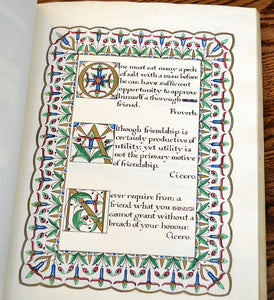 One must eat many a peck
of salt with a man before
he can have sufficient
opportunity to approve
himself a thorough
friend.
Proverb.
Although friendship is
certainly productive of
utility; yet utility is
not the primary motive
of friendship.
Cicero.
Never require from a
friend what you
cannot grant without a
breach of your honour:
Cicero.